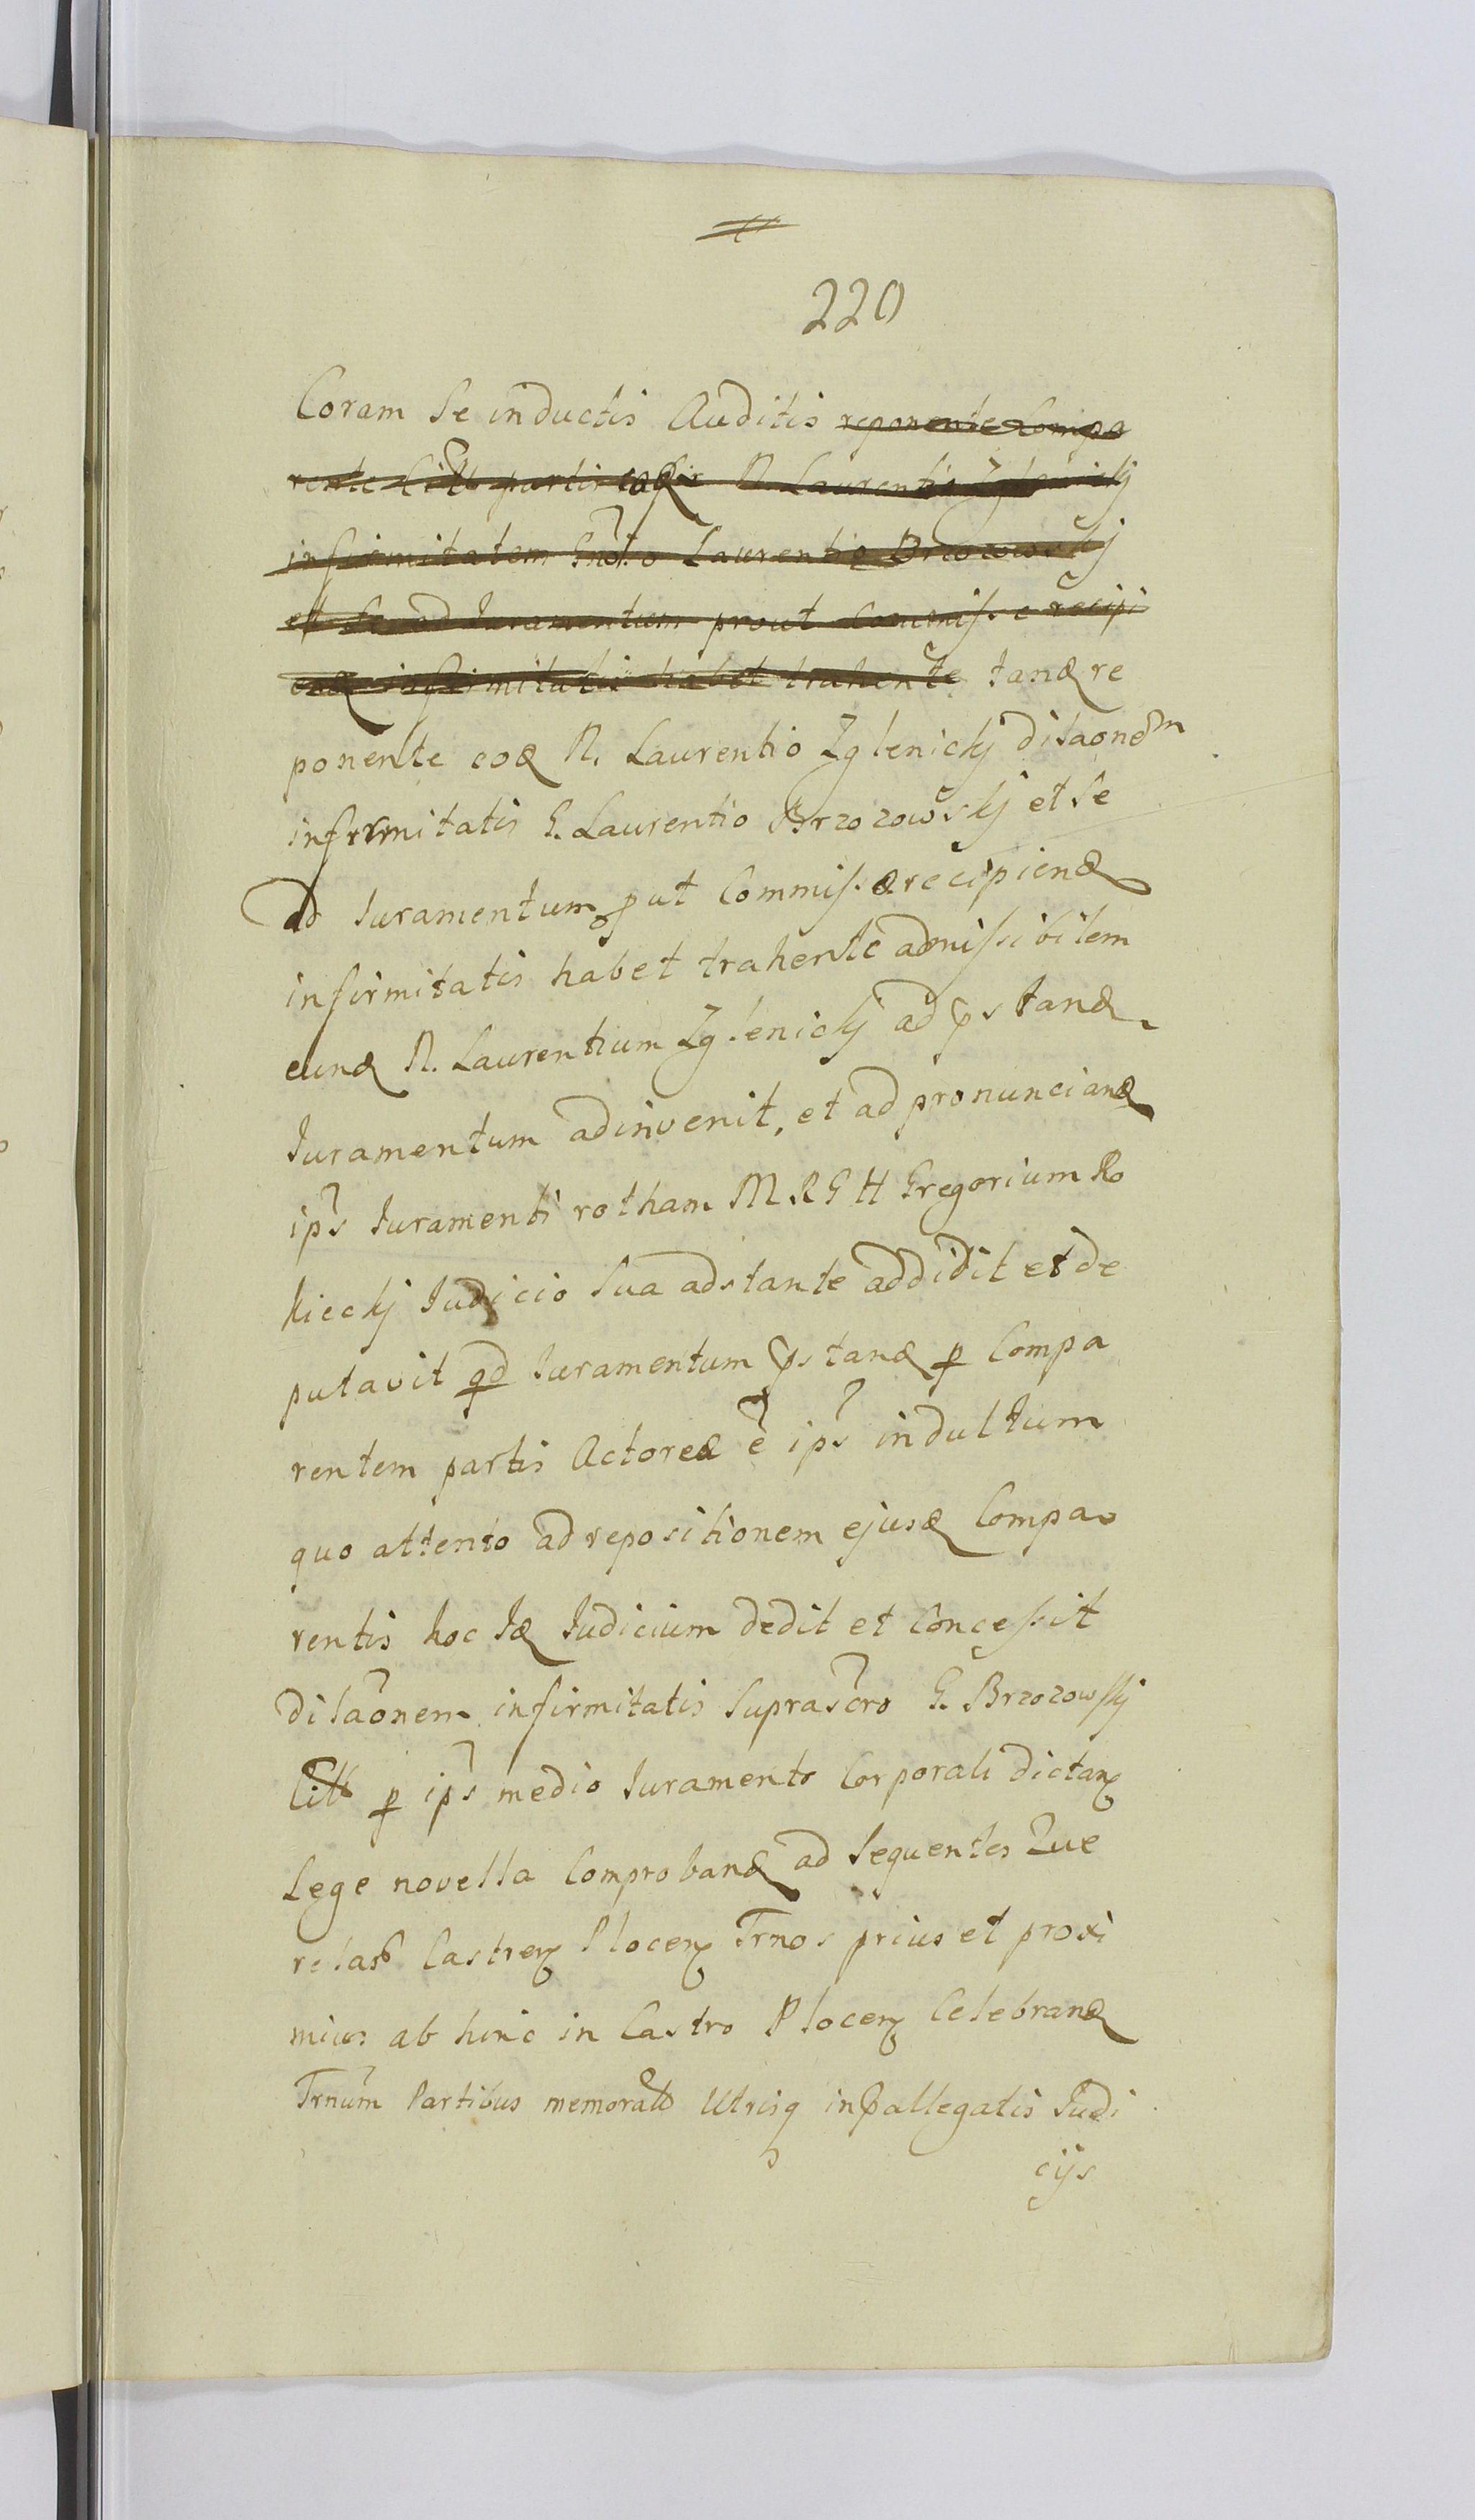 220
Coram Se inductis Auditis reponente Compa
rente Citt partis N. Laurentio Zglenickj
infirmitatem Gnoso Laurentio Brzozowskj
et Se ad Iuramentum prout Commisse recipi
end infirmitatis habet trahente tand re
ponente eod N. Laurentio Zglenickj dilaonem
infirmitatis G. Laurentio Brzozowskj et Se
ad Iuramentum put Commiss recipiend
infirmitatis habet trahente admissibilem
eund N. Laurentium Zglenickj ad pstand
Iuramentum adinvenit, et ad pronunciand
ips Iuramenti rotham M R G H Gregorium Ro
kickj Iudicio Sua adstante addidit et de
putavit qd Iuramentum pstand p Compa
rentem partis Actorea e ips indultum
quo attento ad repositionem ejusd Compa
rentis hoc Id Iudicium dedit et Concessit
dilaonem infirmitatis Suprascro G. Brzozowskj
Citt p ips medio Iuramento Corporali dictan
Lege novella Comproband ad Sequentes Que
relar Castren Plocen Trnos prius et proxi
mius ab hinc in Castro Plocen Celebrand
Trnum Partibus memoratt Utrisq in pallegatis Judi
cijs